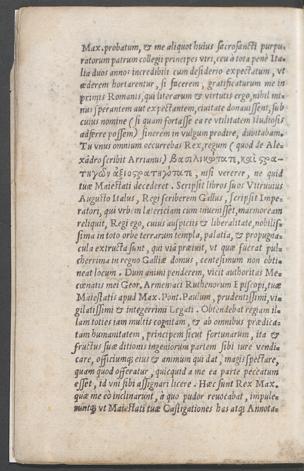 Max. probatum, & me aliquot huius sacrosancti purpu-
ratorum patrum collegij principes viri, ceu à tota penè Ita-
lia duos annos incredibili cum desiderio expectatum, vt
æderem hortarentur, si facerem, gratificaturum me in
primis Romanis, qui literarum & virtutis ergo, nihil mi-
nus sperantem aut expectantem, ciuitate donauissent, sub
cuius nomine (si quam fortasse ea re vtilitatem studiosis
adferre possem) sinerem in vulgum prodire, dubitabam.
Tu vnus omnium occurrebas Rex, regum (quod de Ale-
xādro scribit Arrianus)
nisi vererer, ne quid
tuæ Maiestati decederet. Scripsit libros suos Vitruuius
Augusto Italus, Regi scriberem Gallus, scripsit Impe-
ratori, qui vrbem lateritiam cum inuenisset, marmoream
reliquit, Regi ego, cuius auspicijs & liberalitate, nobilis-
sima in toto orbe terrarum templa, palatia, & propugna-
cula extructa sunt, qui viā præiuit, vt quæ fuerat pul-
cherrima in regno Galliæ domus, centesimum non obti-
neat locum. Dum animi penderem, vicit authoritas Me-
cœnatis mei Geor. Armeniaci Ruthenorum Episcopi, tuæ
Maiestatis apud Max. Pont. Paulum, prudentissimi, vi-
gilatissimi & integerrimi Legati. Obtendebat regiam il-
lam toties iam multis cognitam, & ab omnibus prædica-
tam humanitatem, principem sicut fortunarum, ita &
fructus suæ ditionis ingeniorum partem sibi iure vendi-
care, officiumq; eius & animum qui dat, magis spectare,
quam quod offeratur, quicquid a me ea parte peccatum
esset, id vni sibi assignari licere. Hæc sunt Rex Max.
quæ me eò inclinarunt, à quo pudor reuocabat, impule-
runtq; vt Maiestati tuæ Castigationes has atq; Annota-